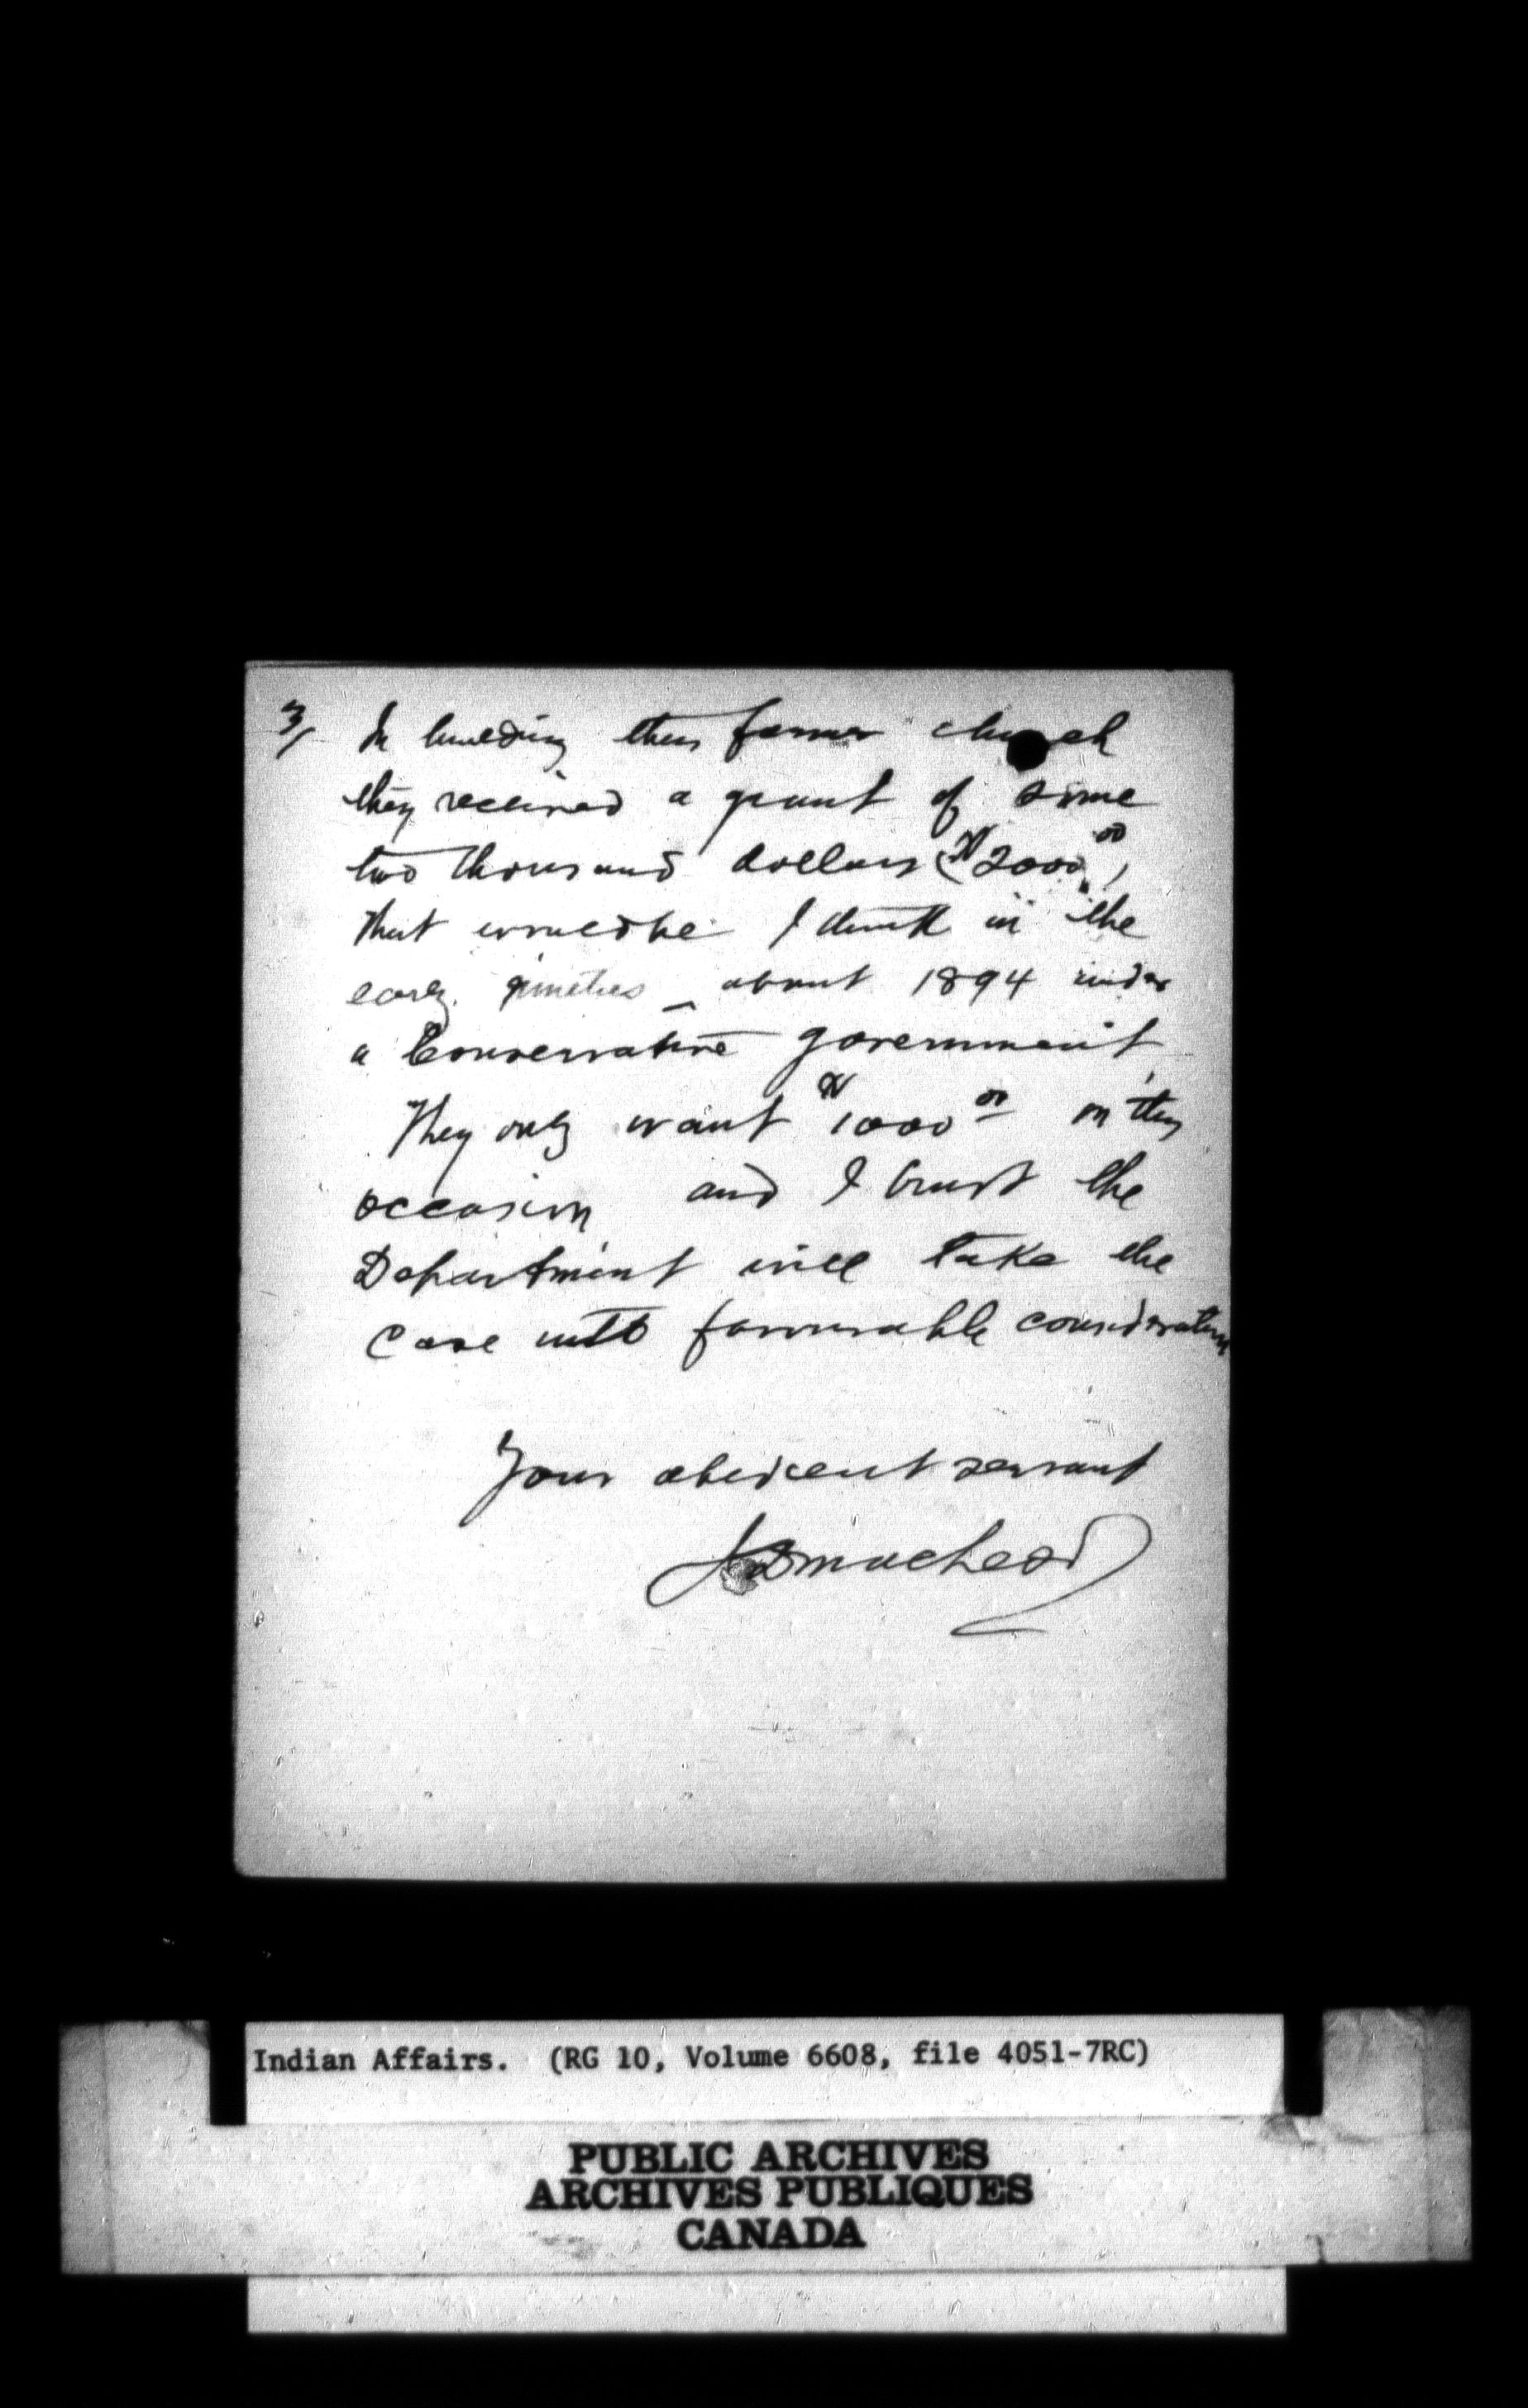 3/ In building their former church
they received a grant of some
two thousand dollars ($2000.00)
that would be I think in the
early nineties – about 1894 under
a Conservative government.
They only want $1000.00 on this
occasion and I trust the
Department will take the
case into favourable consideration
Your obedient servant
Indian Affairs. (RG 10, Volume 6608, file 4051-7RC)
PUBLIC ARCHIVES
ARCHIVES PUBLIQUES
CANADA